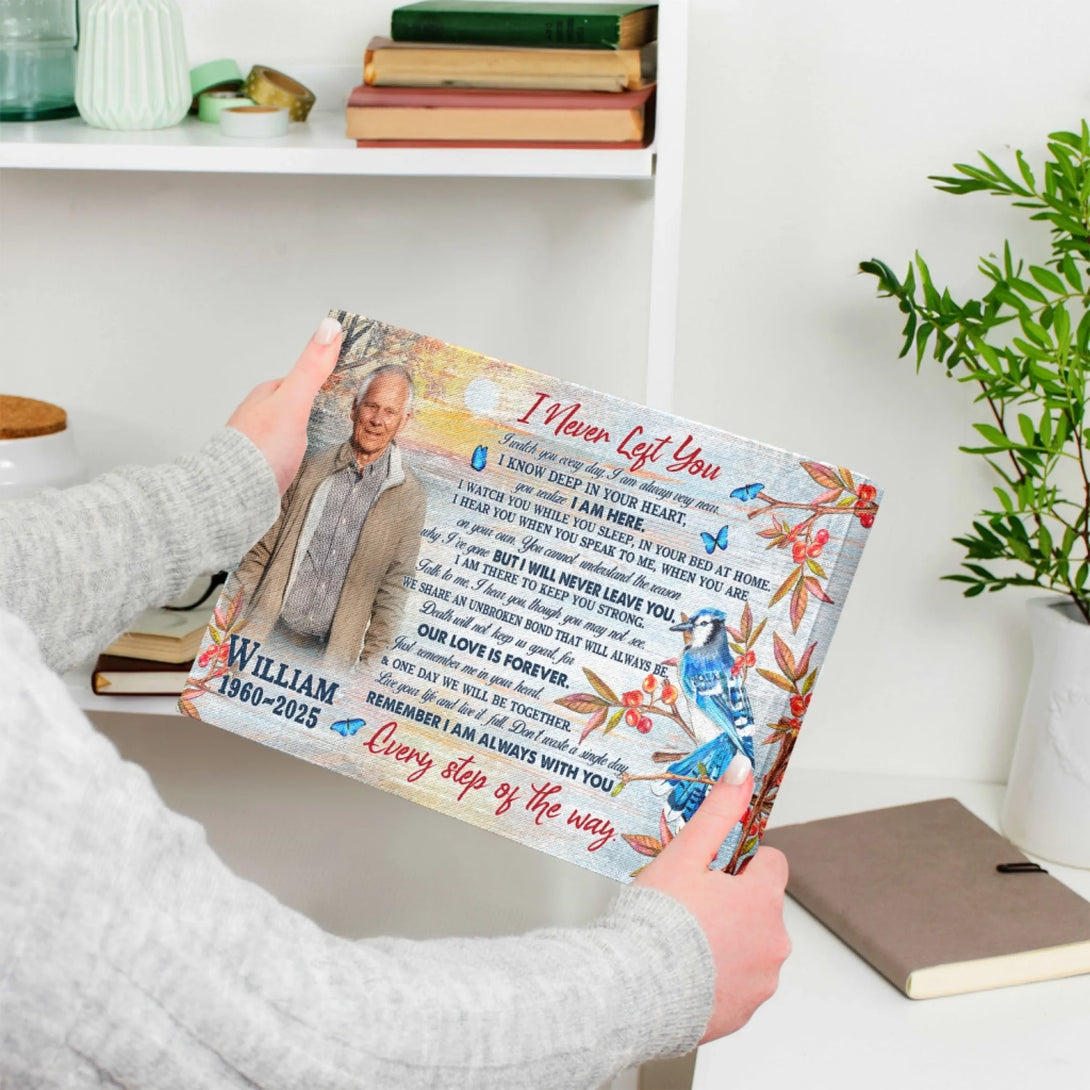 I Never Left You
I watch you every day, I am always very near.
I KNOW DEEP IN YOUR HEART,
you realize I AM HERE.
I WATCH YOU WHILE YOU SLEEP, IN YOUR BED AT HOME.
I HEAR YOU WHEN YOU SPEAK TO ME, WHEN YOU ARE
on your own. You cannot understand the reason
why I've gone BUT I WILL NEVER LEAVE YOU,
I AM THERE TO KEEP YOU STRONG.
Talk to me, I hear you, though you may not see.
WE SHARE AN UNBROKEN BOND THAT WILL ALWAYS BE.
Death will not keep us apart, for
OUR LOVE IS FOREVER.
Just remember me in your heart,
& ONE DAY WE WILL BE TOGETHER.
Live your life and live it full. Don't waste a single day,
REMEMBER I AM ALWAYS WITH YOU
Every step of the way.
WILLIAM
1960~2025